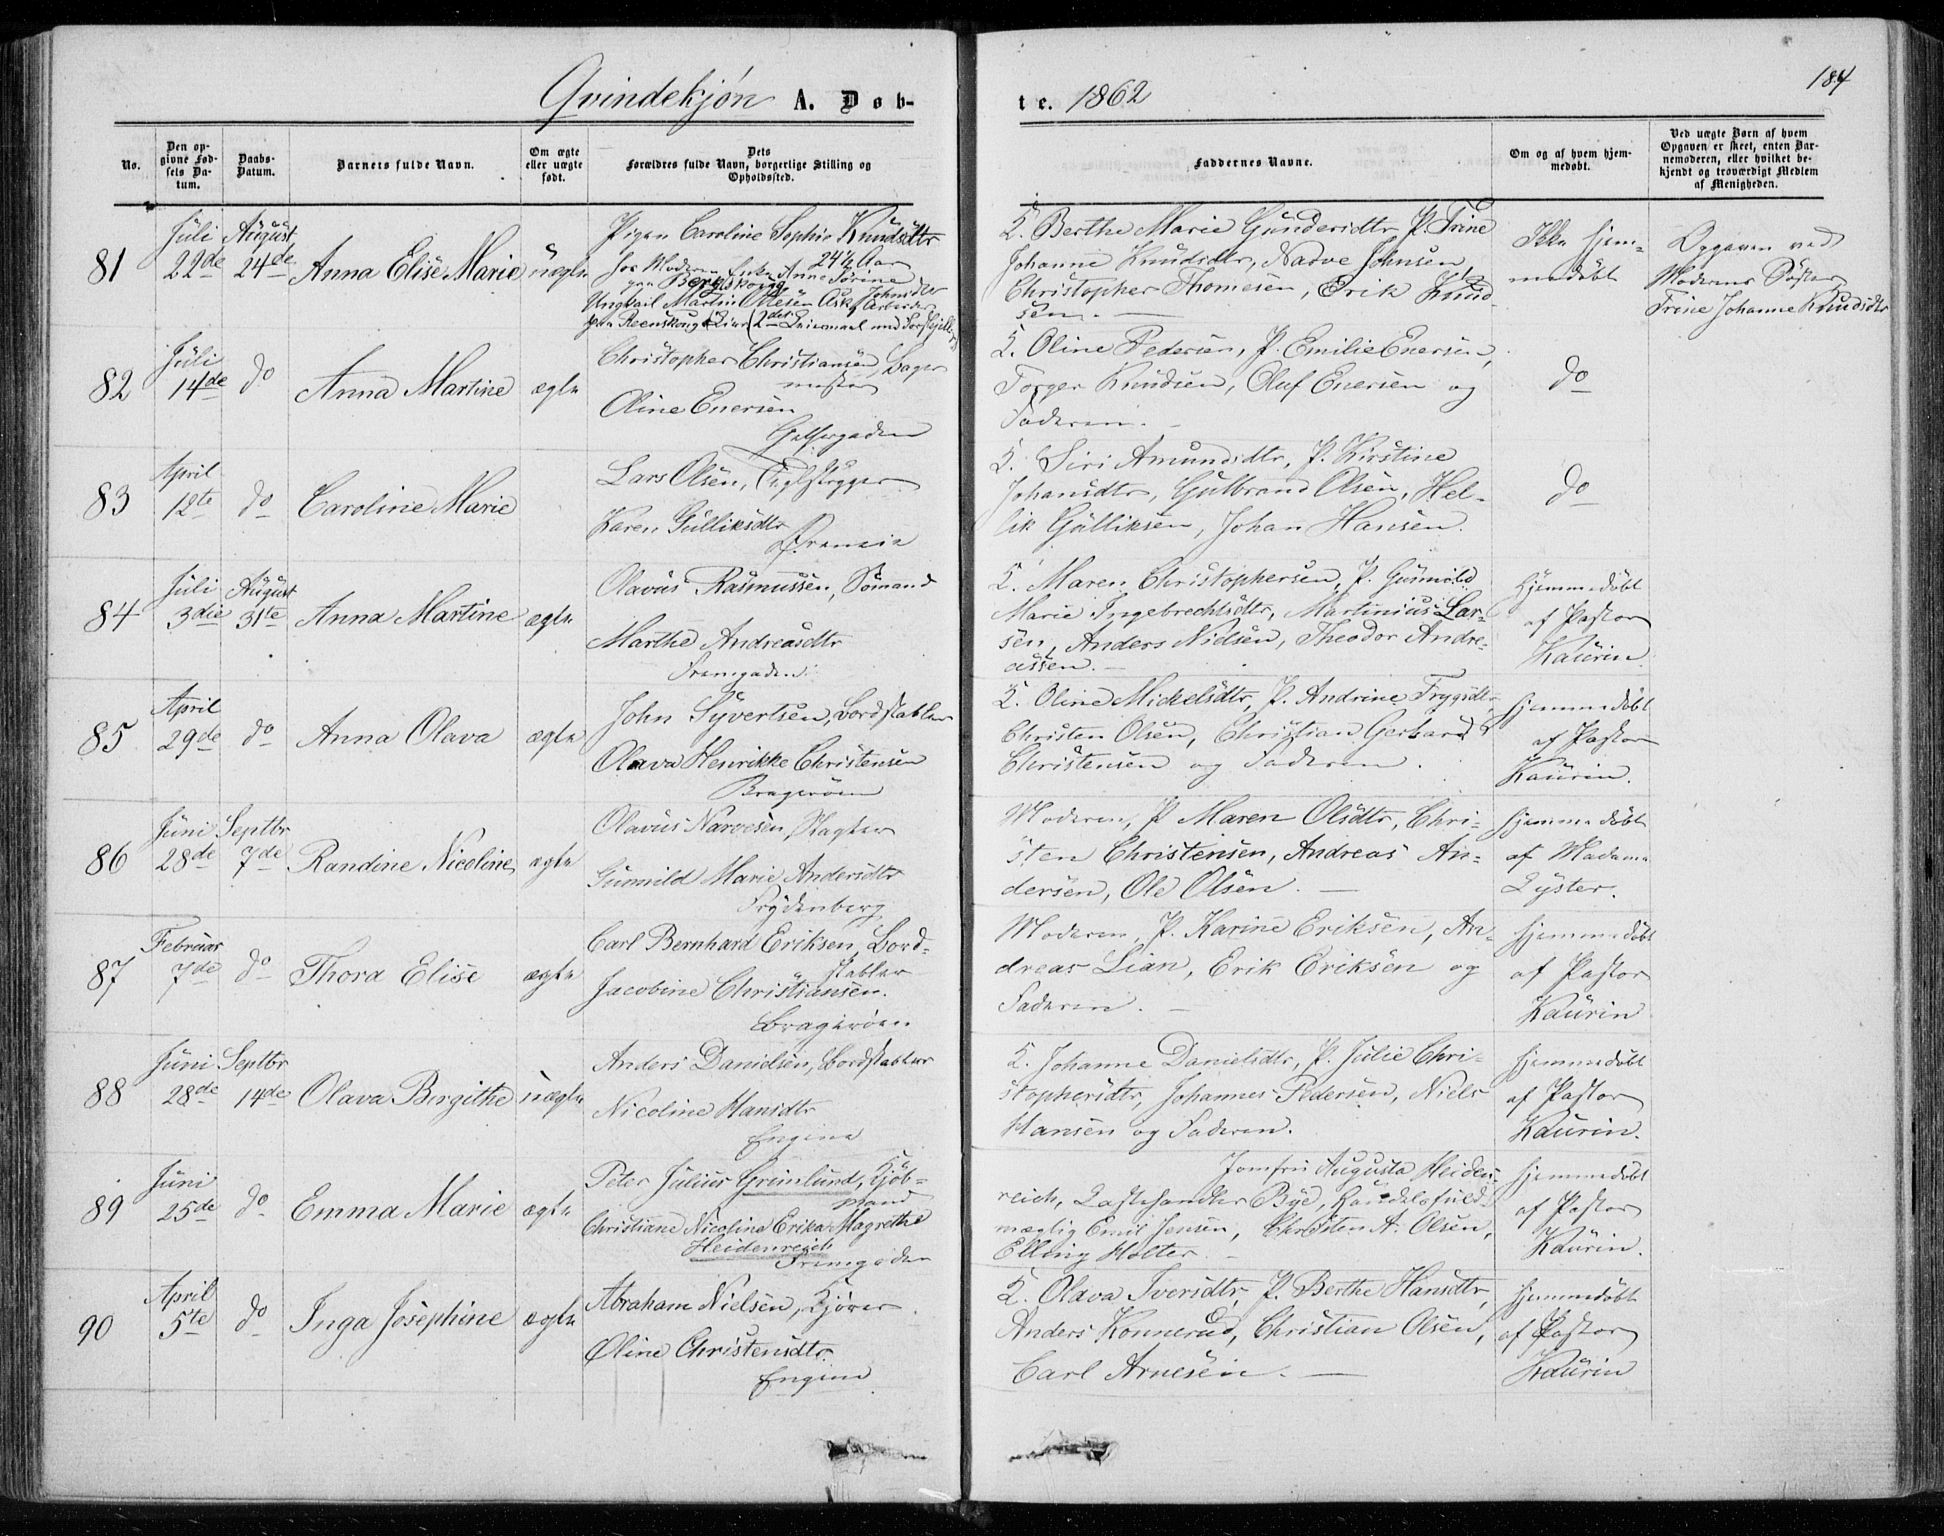 Qvindekjøn A. Døb-
te. 1862
184
No.
Den opgivne Fødsels Datum.
Daabs-Datum.
Barnets fulde Navn.
Om ægte eller uægte født.
Dets Forældres fulde Navn, borgerlige Stilling og Opholdssted.
Faddernes Navne.
Om og af hvem hjemmedøbt.
Ved uægte Børn af hvem Opgaven er skeet, enten Barnemoderen, eller hvilket bekjendt og troværdigt Medlem af Menigheden.
81
Juli 22de
August 24de
Anna Elise Marie
uægte
Pigen Caroline Sophie Knudsdtr
24½ Aar
hos Moderen Enke Anne Torine Johnsdtr
paa Bergskoug
Ungkarl Martin Olesen Ask, Arbeider
paa Reenskoug 2det Leiermaal med
K. Berthe Marie Gundersdtr, P. Trine
Johanne Knudsdtr, Nadve Johnsen,
Christopher Thomesen, Erik Knud
sen. —
Ikke hjem-
medøbt
Opgaven ved
Moderens Søster
Trine Johanne Knudsdtr
82
Juli 14de
do
Anna Martine
ægte
Christopher Christiansen, Bager
mester
Oline Enersen
K. Oline Pedersen, P. Emilie Enersen,
Torger Knudsen, Oluf Enersen og
Faderen. —
do
83
April 12te
do
Caroline Marie
Lars Olsen, Teglstryger
Karen Gulliksdtr
K. Siri Amundsdtr, P. Kirstine
Johansdtr, Gulbrand Olsen, Hel-
lik Gulliksen, Johan Hansen.
do
84
Juli 3die
August 31te
Anna Martine
ægte
Olavus Rasmussen, Sømand
Marthe Andreasdtr
Strømgaden
K. Maren Christophersen, P. Gunnild
Marie Ingebrechtsdtr, Martinius Lar-
sen, Anders Nielsen, Theodor Andre-
assen. —
Hjemmedøbt
af Pastor
Kaurin.
85
April 29de
do
Anna Olava
ægte
John Syvertsen, Bordstabler
Olava Henrikke Christensen
Bragerøen
K. Oline Mickelsdtr, P. Andrine Trygsdtr,
Christen Olsen, Christian Gerhard
Christensen og Faderen.
Hjemmedøbt
af Pastor
Kaurin.
86
Juni 28de
Septbr 7de
Randine Nicoline
ægte
Olavus Narvesen, Slagter
Gunnild Marie Andersdtr
Frydenberg
Moderen, P. Maren Olsdtr, Chri-
sten Christensen, Andreas An-
dersen, Ole Olsen. —
Hjemmedøbt
af Madame
Lyster.
87
Februar 7de
do
Thora Elise
ægte
Carl Bernhard Eriksen, Bord-
stabler
Jacobine Christiansen.
Bragerøen
Moderen, P. Karine Eriksen, An-
dreas Lian, Erik Eriksen og
Faderen. —
Hjemmedøbt
af Pastor
Kaurin
88
Juni 28de
Septbr 14de
Olava Bergithe
uægte
Anders Danielsen, Bordstabler
Nicoline Hansdtr
Engene
K. Johanne Danielsdtr, P. Julie Chri-
stophersdtr, Johannes Pedersen, Niels
Hansen og Faderen.
Hjemmedøbt
af Pastor
Kaurin.
89
Juni 25de
do
Emma Marie
ægte
Peter Julius Grünlund, Kjøb-
mand
Christiane Nicoline Erika Magrethe
Heidenreich
Strømgaden
Jomfru Augusta Heiden-
reich, Lastehandler Bye, Handelsfuld-
mægtig Emil Jensen, Christen A. Olsen,
Elling Holter. —
Hjemmedøbt
af Pastor
Kaurin.
90
April 5te
do
Inga Josephine
ægte
Abraham Nielsen, Kjører
Oline Christensdtr.
Engene
K. Olava Iversdtr, P. Berthe Hansdtr,
Anders Konnerud, Christian Olsen,
Carl Arnesen. —
Hjemmedøbt
af Pastor
Kaurin